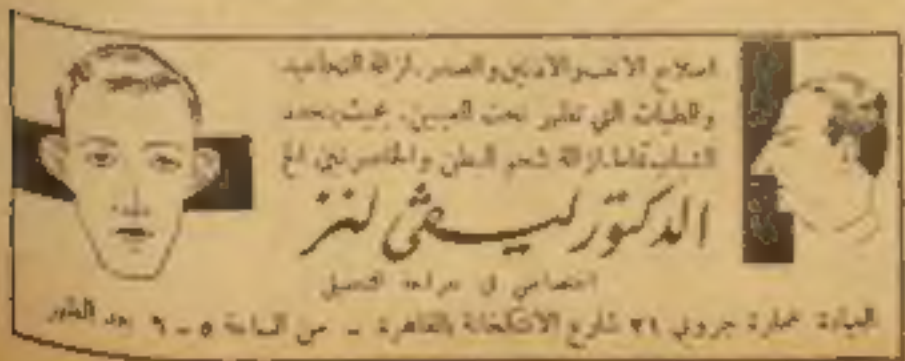 اصلاح الانف والاذنين والصدر. ازالة التجاعيد
والطيات التي تظهر تحت العينين. بحيث يتجدد
الشباب تماما. ازالة شحم البطن والخاصرتين الخ
الدكتور ليفى لنز
اختصاصي في جراحة التجميل
العيادة عمارة جروبي ٢١ شارع الانتكخانة بالقاهرة - من الساعة ٥ - ٦ بعد الظهر